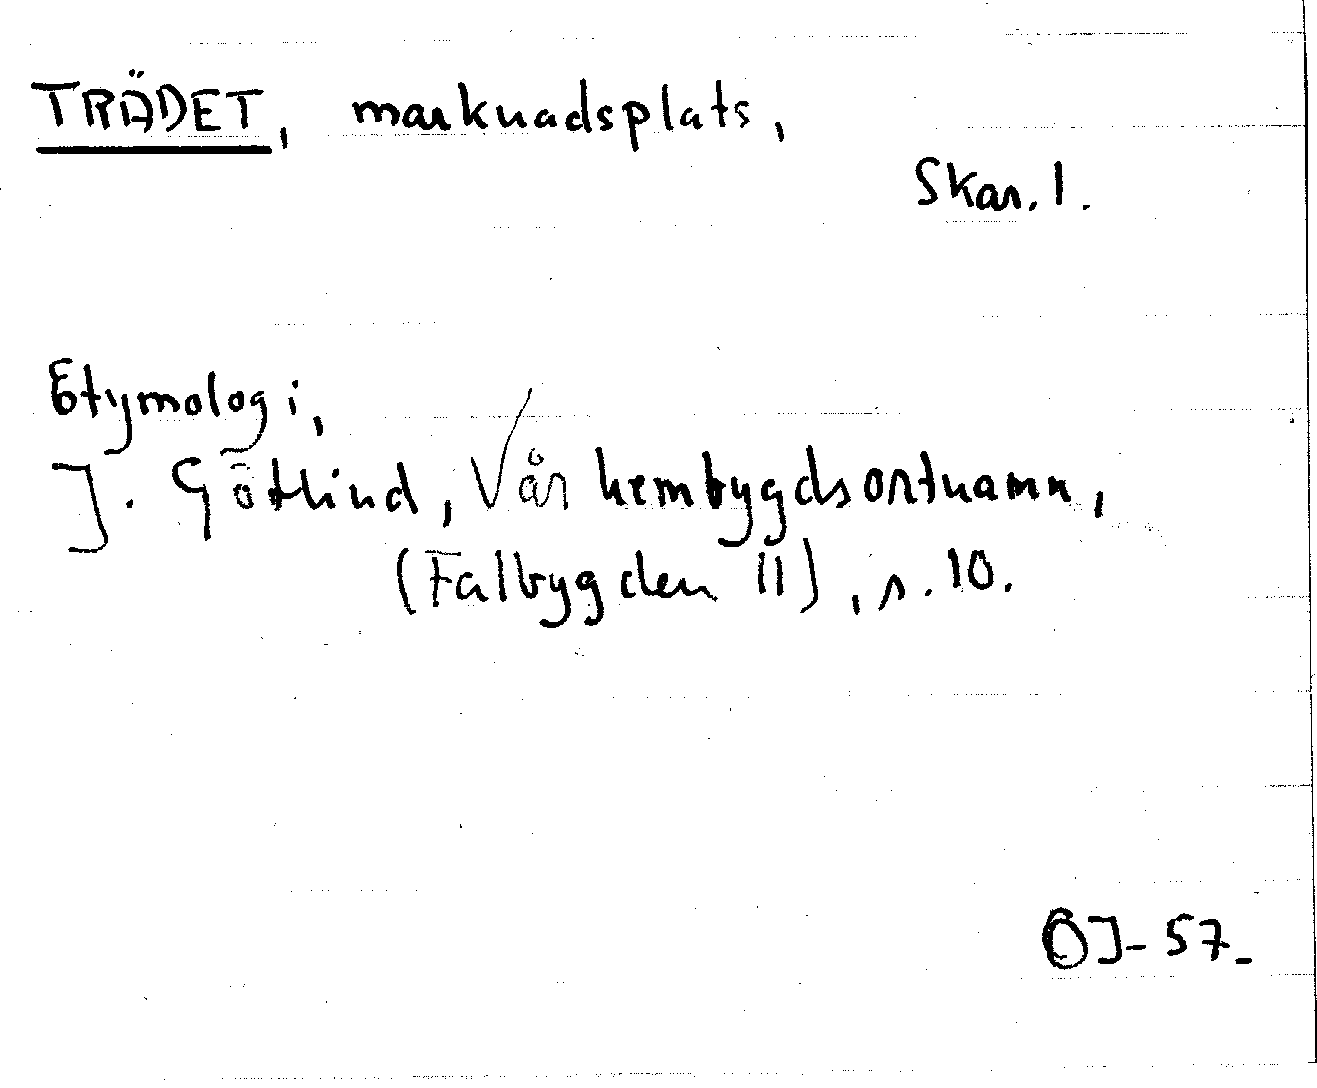 TRÄDET, marknadsplats,
Skar. l.
Etymologi,
J. Götlind, Vår hembygdsortnamn,
(Falbygden II), s. 10.
ÖJ-57-